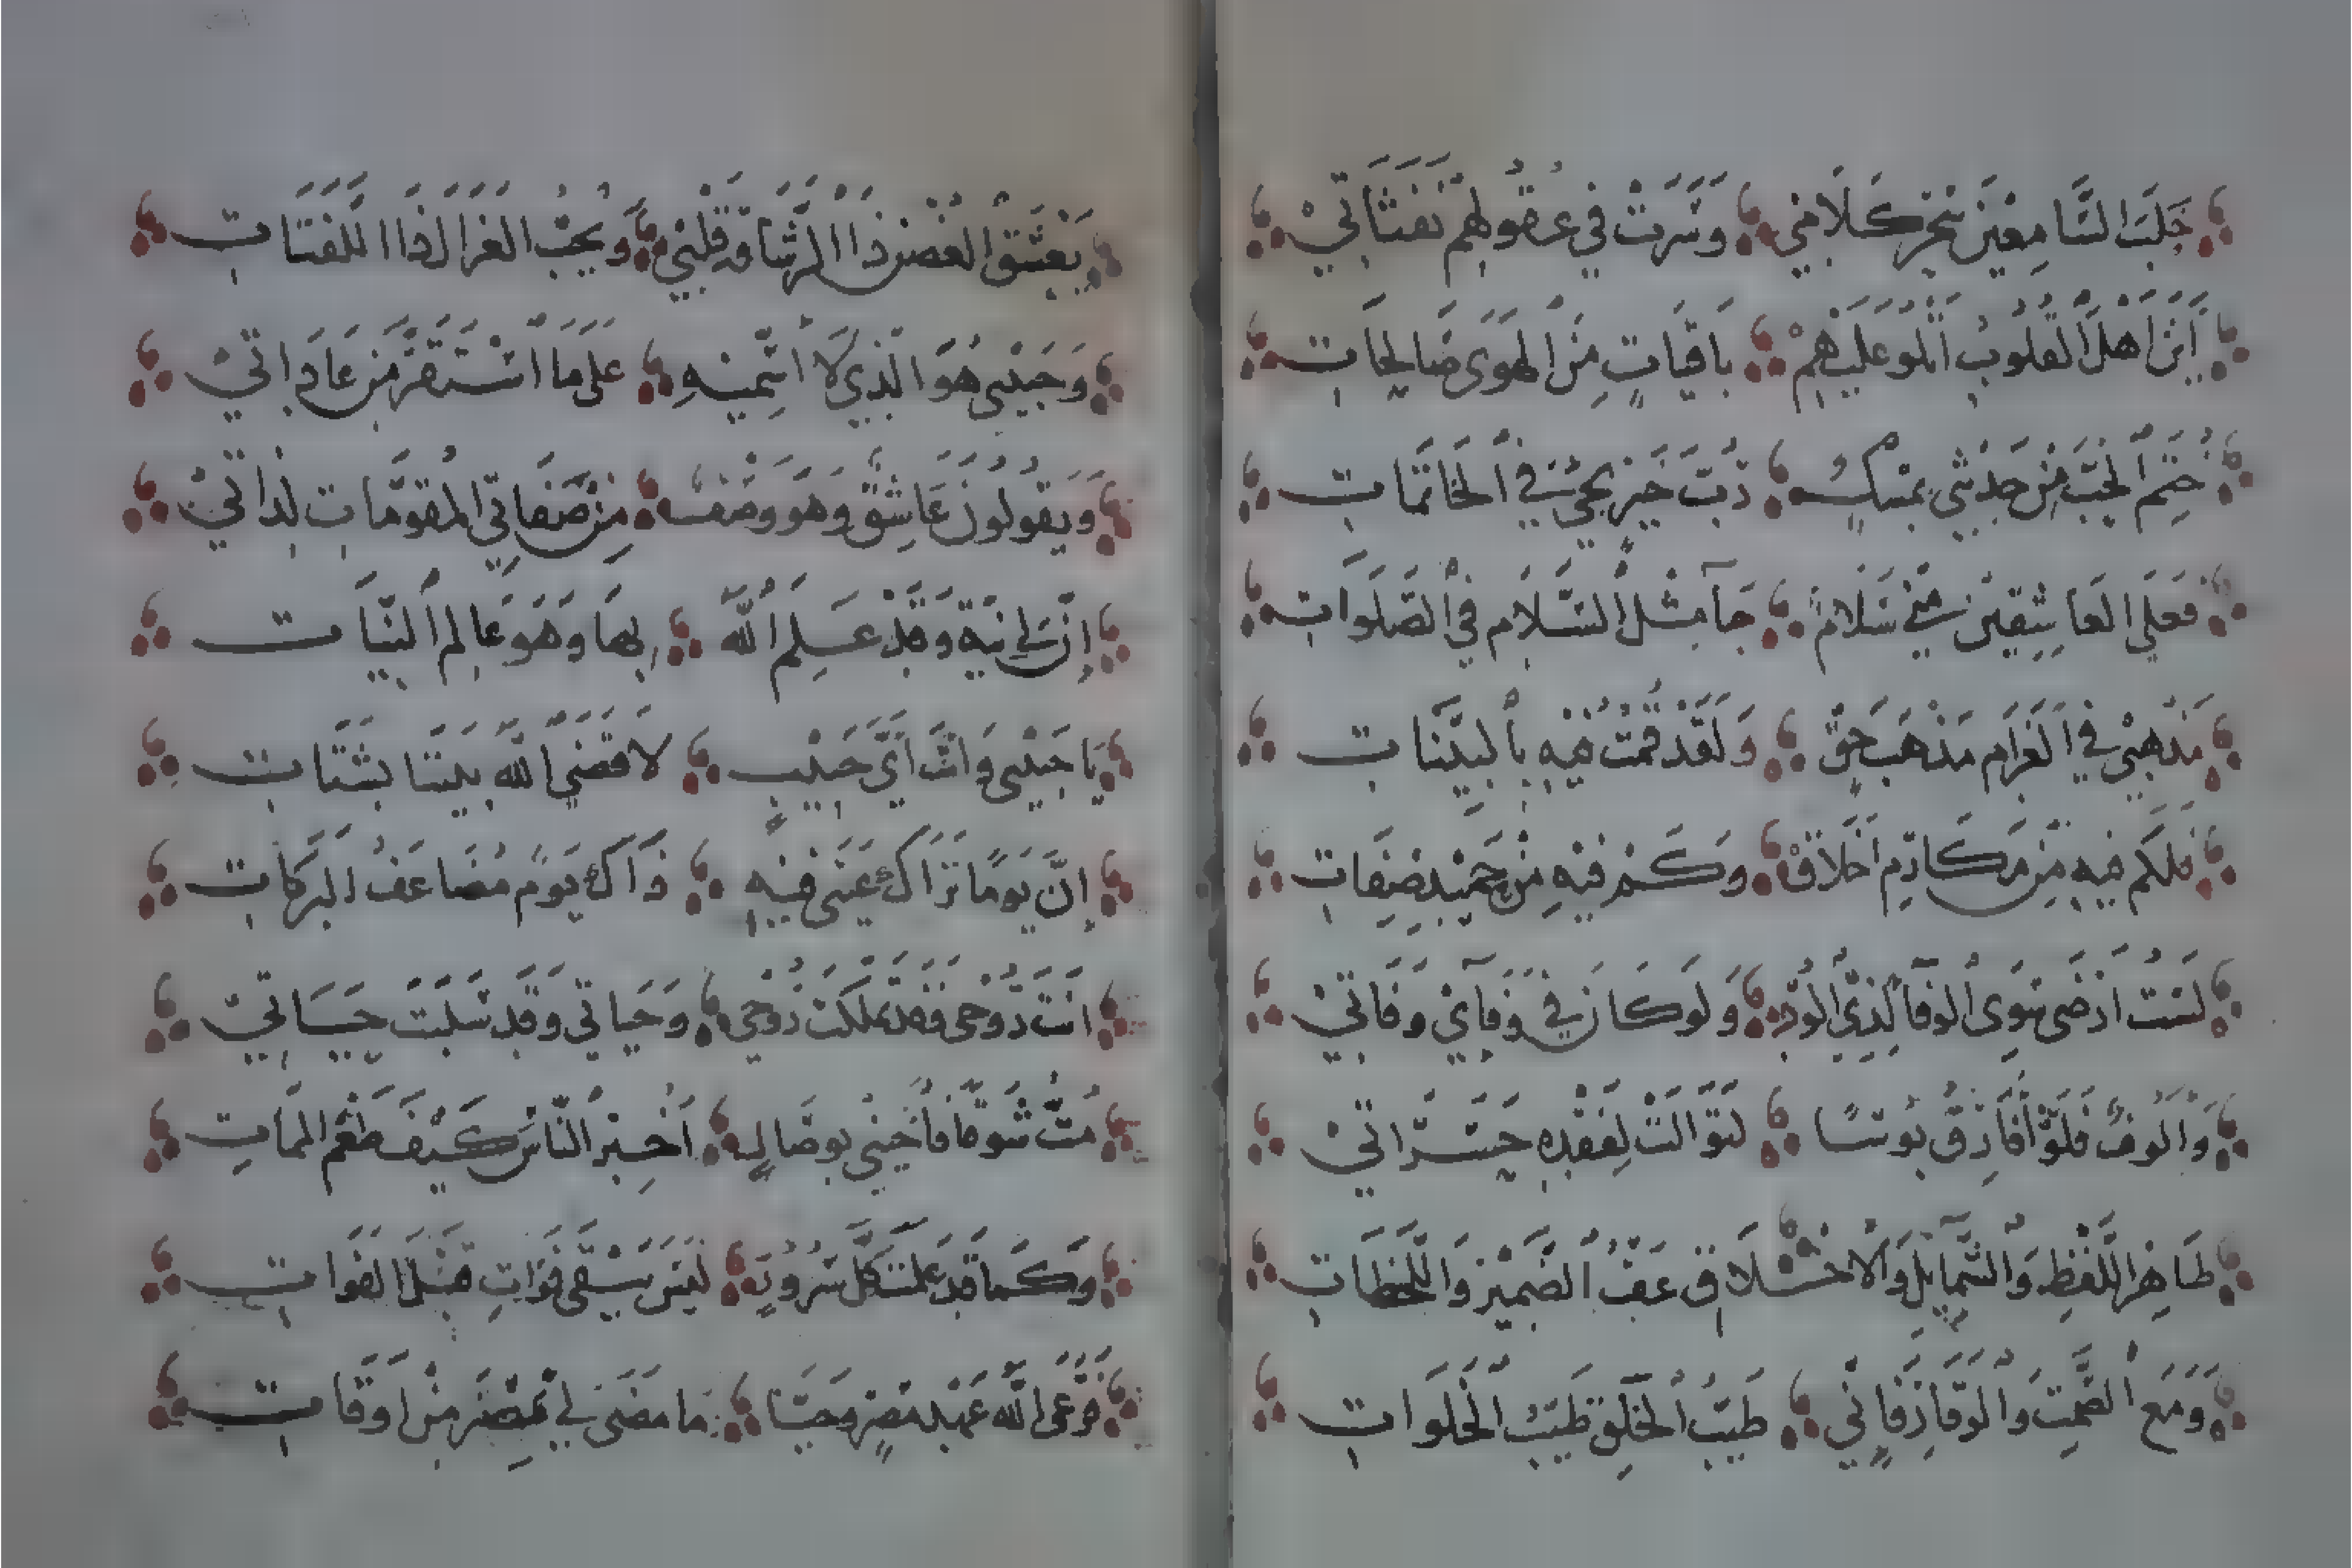 خَلَبَ السَّامِعِيْنَ سِحْرُ كَلَامِيْ وَسَرَتْ فِي عُقُولِهِمْ نَفَثَاتِيْ
أَيْنَ أَهْلُ الْقُلُوبِ أَتْلُو عَلَيْهِمْ بَاقِيَاتٍ مِنَ الْهَوَى صَالِحَاتِ
خُتِمَ الْحُبُّ مِنْ حَدِيْثِي بِمِسْكٍ رُبَّ خَيْرٍ يَجِيْءُ فِي الْخَاتِمَاتِ
فَعَلَى الْعَاشِقِيْنَ مِنِّيْ سَلَامٌ جَآ مِثْلَ السَّلَامِ فِي الصَّلَوَاتِ
مَذْهَبِيْ فِي الْغَرَامِ مَذْهَبُ حَقٍّ وَلَقَدْ قُمْتُ فِيْهِ بِالْبَيِّنَاتِ
فَلَكَم فِيهِ مِنْ مَكَارِمِ أَخْلَاقٍ وَكَمْ فِيْهِ مِنْ حَمِيْدِ صِفَاتِ
لَسْتُ أَرْضَى سِوَى الْوَفَآ لِذِي الْوُدِّ وَلَوْ كَانَ فِيْ وَفَآئِيْ وَفَاتِيْ
وَأَلُوفٌ فَلَوْ أُفَارِقُ بُوسًا لَتَوَالَتْ لِفَقْدِهِ حَسَرَاتِيْ
طَاهِرُ اللَّفْظِ وَالشَّمَآئِلِ وَالْاخْلَاقِ عَفُّ الضَّمِيْرِ وَاللَّحَظَاتِ
وَمَعَ الصَّمْتِ وَالْوَقَارِ فَإِنِّي طَيِّبُ الْخُلْقِ طَيِّبُ الْخَلَوَاتِ
يَعْشَقُ الْغُصْنَ ذَا الرَّشَاقَةِ قَلْبِيْ وَيُحِبُّ الْغَزَالَ ذَا اللَّفَتَاتِ
وَحَبِيْبِي هُوَ الَّذِي لَا أُسَمِّيْهِ عَلَى مَا اسْتَقَرَّ مِنْ عَادَاتِيْ
وَيَقُولُونَ عَاشِقٌ وَهُوَ وَصْفٌ مِنْ صِفَاتِي الْمُقَوِّمَاتِ لِذَاتِيْ
إِنَّ لِي نِيَّةً وَقَدْ عَلِمَ اللهُ بِهَا وَهُوَ عَالِمُ النِّيَّاتِ
يَا حَبِيْبِي وَأَنْتَ أَيُّ حَبِيْبٍ لَا قَضَى اللهُ بَيْنَنَا بِشَتَاتِ
إِنَّ يَوْمًا تَرَاكَ عَيْنِي فِيْهِ ذَاكَ يَوْمٌ مُضَاعَفُ الْبَرَكَاتِ
أَنْتَ رُوْحِي وَقَدْ تَمَلَّكْتَ رُوْحِي وَحَيَاتِي وَقَدْ سَلَبْتَ حَيَاتِيْ
مُتُّ شَوْقًا فَأَحْيِنِي بِوِصَالٍ أُخْبِرُ النَّاسَ كَيْفَ طَعْمُ الْمَمَاتِ
وَكَمَا قَدْ عَلِمْتَ كُلُّ سُرُورٍ لَيْسَ يَبْقَى فَوَاتِ قَبْلَ الْفَوَاتِ
فَرَعَى اللهُ عَهْدَ مِصْرٍ وَحَيَّا مَا مَضَى لِي بِمِصْرَ مِنْ أَوْقَاتِ